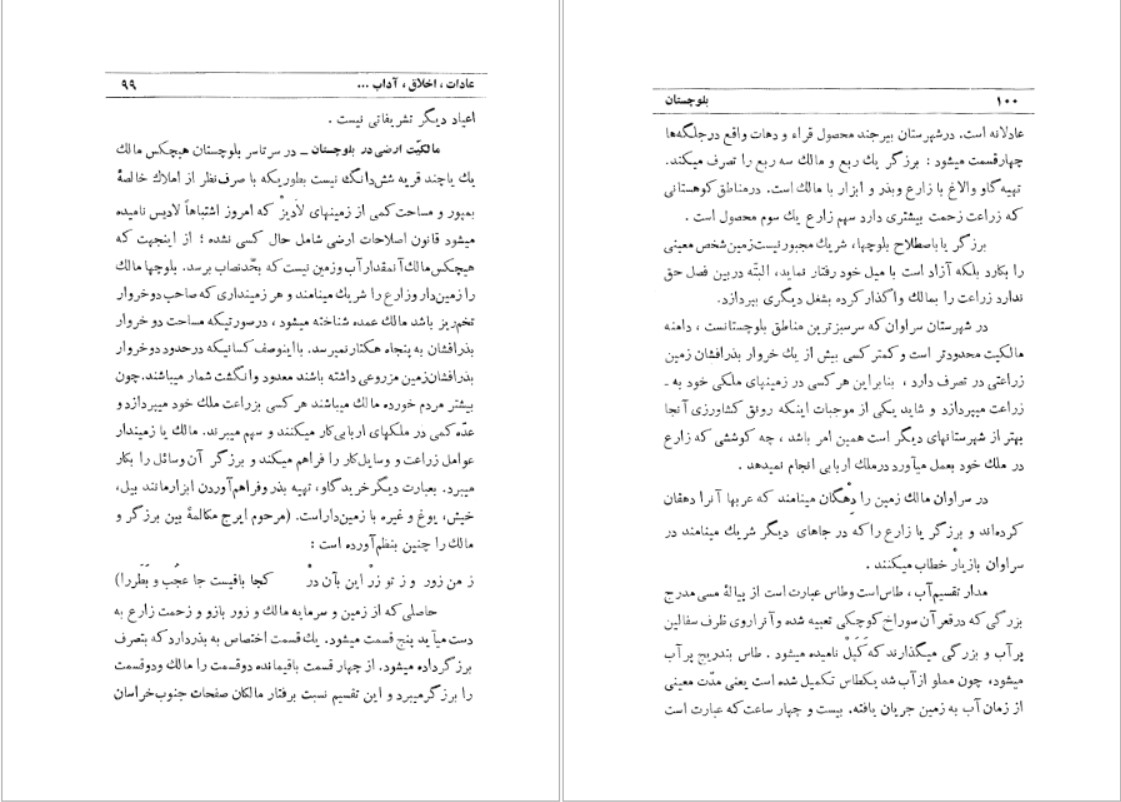 عادات ، اخلاق ، آداب ... ۹۹
اعیاد دیگر تشریفاتی نیست .
مالکیّت ارضی در بلوچستان ــ در سرتاسر بلوچستان هیچکس مالك
یك یاچند قریه شش‌دانگ نیست بطوریکه با صرف‌نظر از املاك خالصهٔ
بمپور و مساحت کمی از زمینهای لادیزْ که امروز اشتباهاً لادیس نامیده
میشود قانون اصلاحات ارضی شامل حال کسی نشده ؛ از اینجهت که
هیچکس مالك آنمقدار آب وزمین نیست که بحّدنصاب برسد. بلوچها مالك
را زمین‌دار وزارع را شریك مینامند و هر زمینداری که صاحب دوخروار
تخم‌ریز باشد مالك عمده شناخته میشود ، درصورتیکه مساحت دو خروار
بذرافشان به پنجاه هکتار نمیرسد. بااینوصف کسانیکه درحدود دوخروار
بذرافشان‌زمین مزروعی داشته باشند معدود وانگشت شمار میباشند.چون
بیشتر مردم خورده مالك میباشند هر کسی بزراعت ملك خود میپردازد و
عدّه کمی در ملکهای اربابی‌کار میکنند و سهم میبرند. مالك یا زمیندار
عوامل زراعت و وسایل‌کار را فراهم میکند و برزگر آن وسائل را بکار
میبرد. بعبارت دیگر خرید گاو، تهیه بذر وفراهم‌آوردن ابزارمانند بیل،
خیش، یوغ و غیره با زمین‌داراست. (مرحوم ایرج مکالمهٔ بین برزگر و
مالك را چنین بنظم‌آورده است :
ز من زور و ز تو زرْ این بآن درْ کجا باقیست جا عجُب و بَطَررا)
حاصلی که از زمین و سرمایه مالك و زور بازو و زحمت زارع به
دست میآید پنج قسمت میشود. یك قسمت اختصاص به بذردارد که بتصرف
برزگر داده میشود. از چهار قسمت باقیمانده دوقسمت را مالك ودوقسمت
را برزگرمیبرد و این تقسیم نسبت برفتار مالکان صفحات جنوب خراسان
۱۰۰ بلوچستان
عادلانه است. درشهرستان بیرجند محصول قراء و دهات واقع درجلگه‌ها
چهارقسمت میشود : برزگر یك ربع و مالك سه ربع را تصرف میکند.
تهیه گاو والاغ با زارع وبذر و ابزار با مالك است. درمناطق کوهستانی
که زراعت زحمت بیشتری دارد سهم زارع یك سوم محصول است .
برزگر یاباصطلاح بلوچها، شریك مجبورنیست‌زمین‌شخص معینی
را بکارد بلکه آزاد است با میل خود رفتار نماید، البتّه دربین فصل حق
ندارد زراعت را بمالك واگذار کرده بشغل دیگری بپردازد.
در شهرستان سراوان که سرسبزترین مناطق بلوچستانست ، دامنه
مالکیت محدودتر است و کمتر کسی بیش از یك خروار بذرافشان زمین
زراعتی در تصرف دارد ، بنابراین هر کسی در زمینهای ملکی خود به ـ
زراعت میپردازد و شاید یکی از موجبات اینکه رونق کشاورزی آنجا
بهتر از شهرستانهای دیگر است همین امر باشد ، چه کوششی که زارع
در ملك خود بعمل میآورد درملك اربابی انجام نمیدهد .
در سراوان مالك زمین را دِهْگان مینامند که عربها آنرا دهقان
کرده‌اند و برزگر یا زارع را که در جاهای دیگر شریك مینامند در
سراوان بازیارْ خطاب میکنند .
مدار تقسیم‌آب ، طاس‌است وطاس عبارت است از پیالهٔ مسی مدرج
بزرگی که درقعر آن سوراخ کوچکی تعبیه شده و آنرا روی ظرف سفالین
پرآب و بزرگی میگذارند که کَپَلْ نامیده میشود . طاس بتدریج پرآب
میشود، چون مملو ازآب شد یکطاس تکمیل شده است یعنی مدّت معینی
از زمان آب به زمین جریان یافته. بیست و چهار ساعت که عبارت است